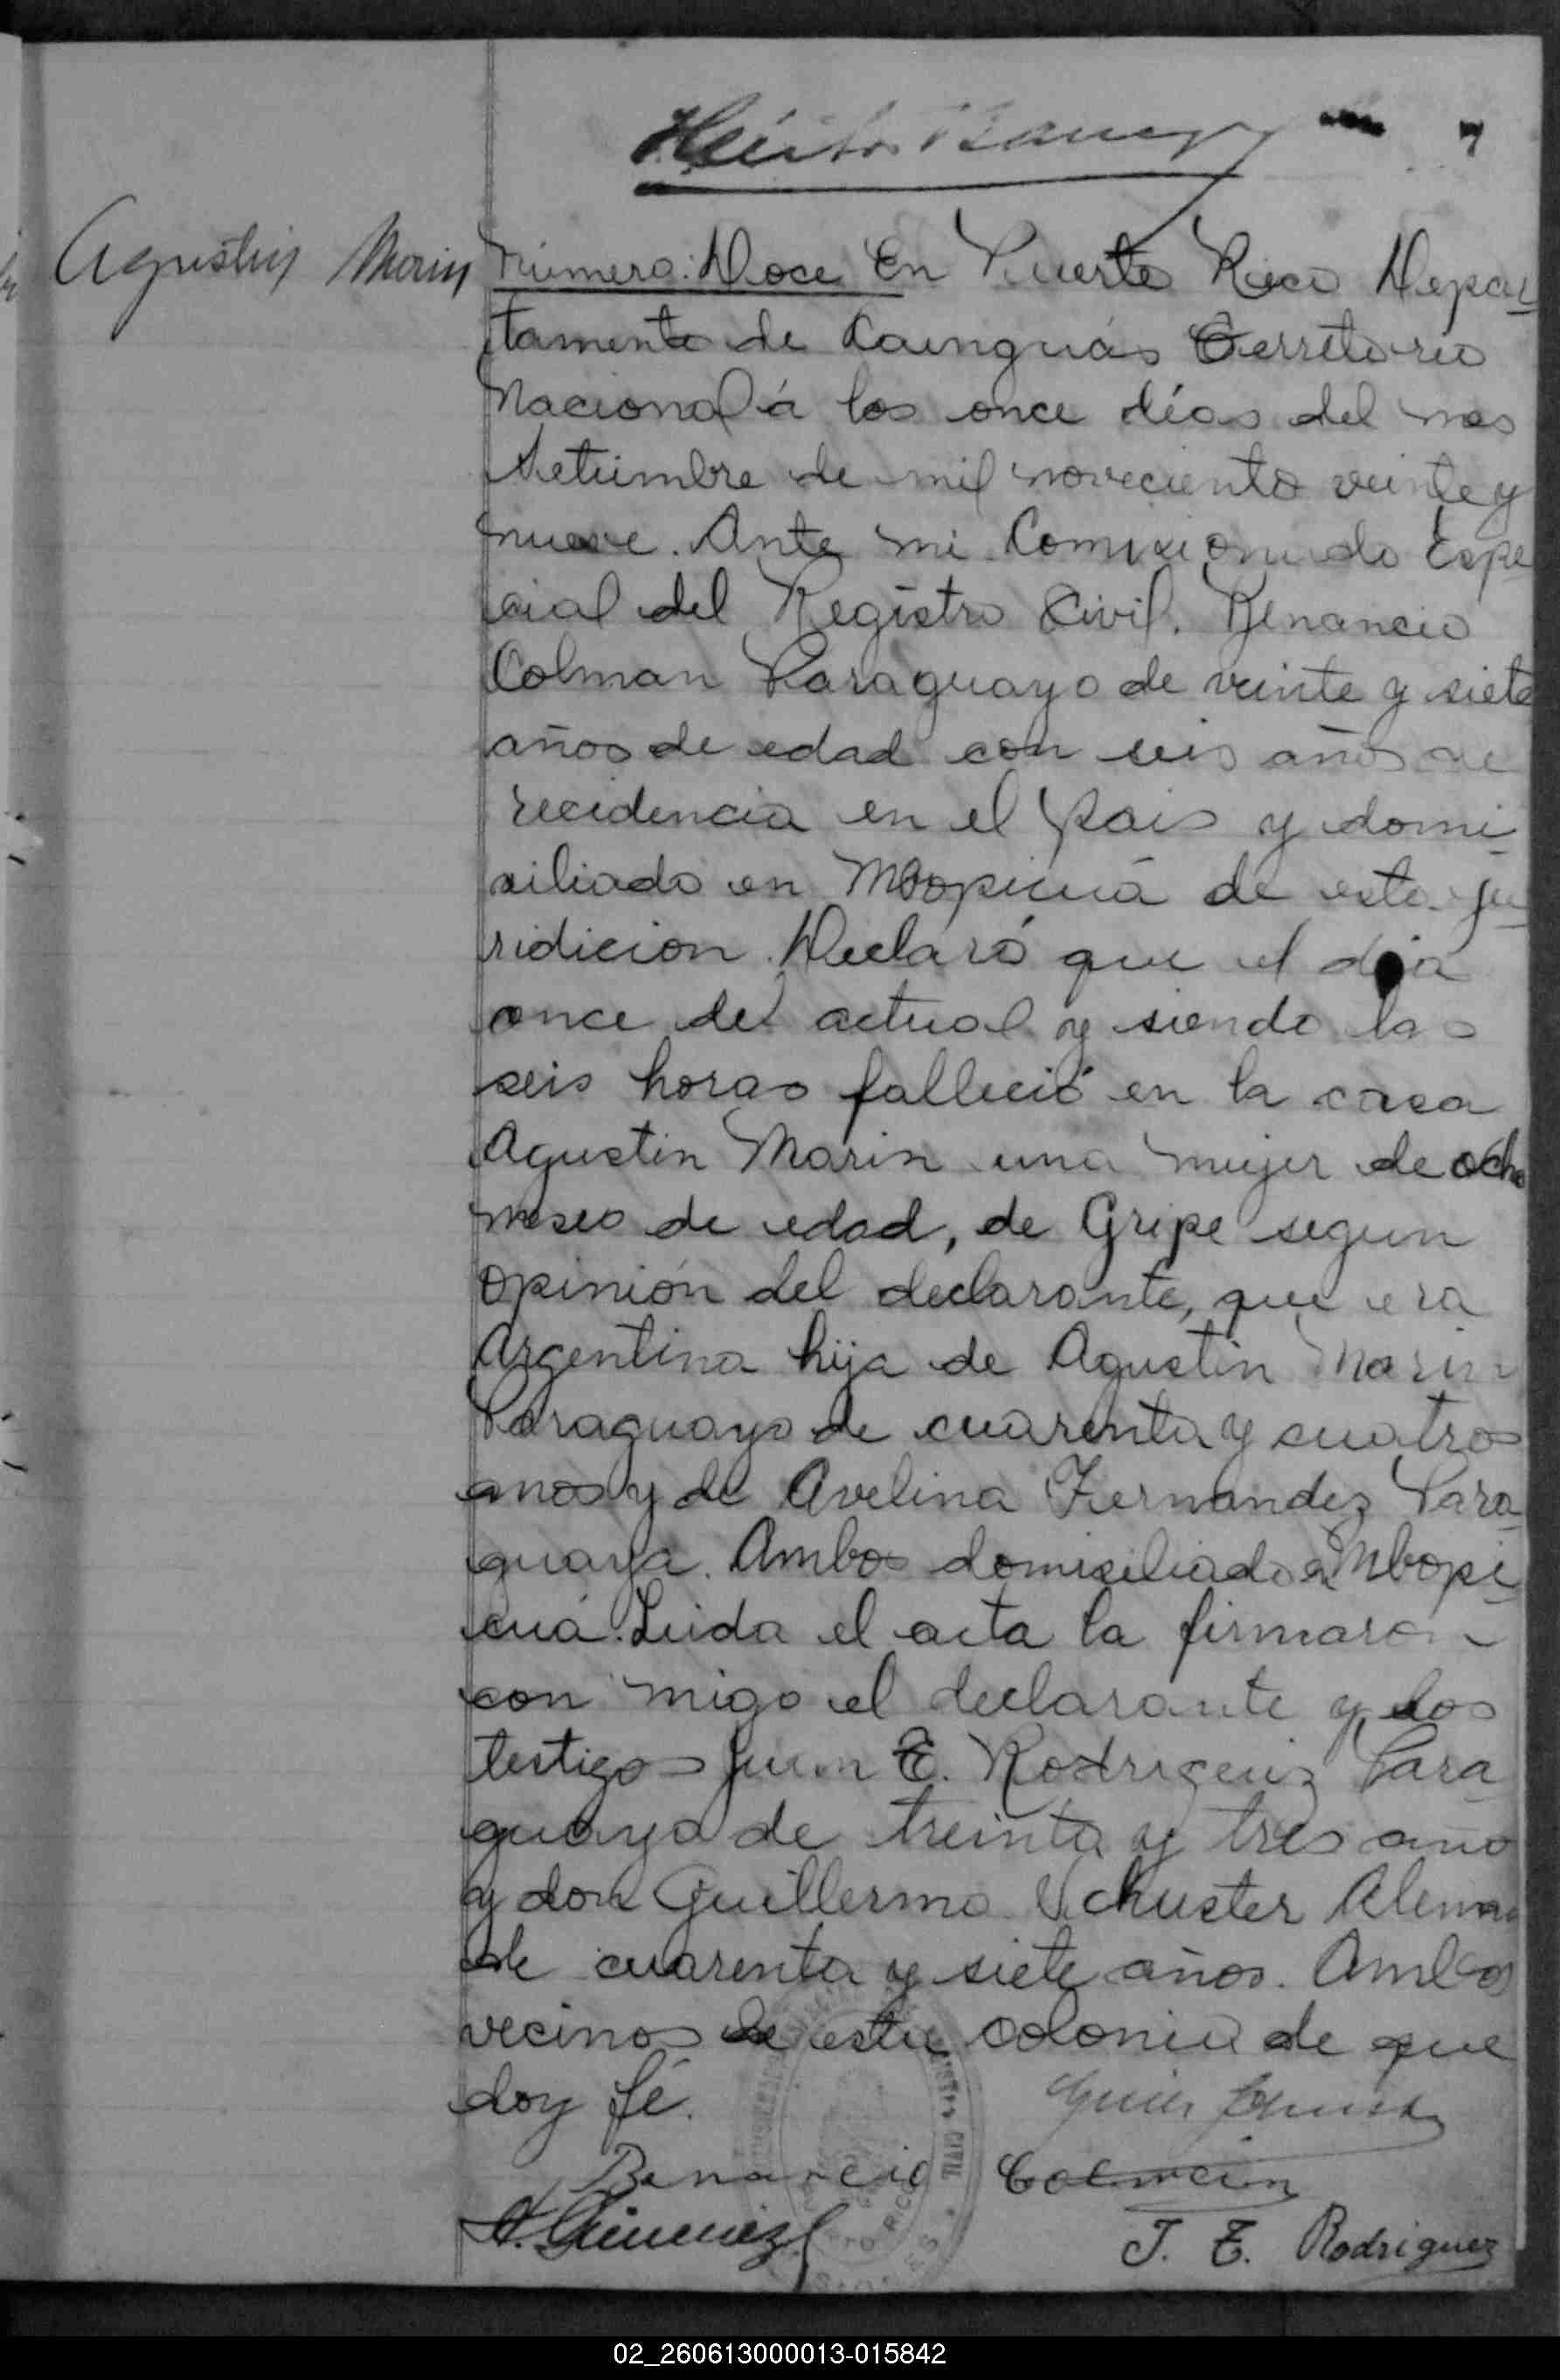 7
Agustin Marin
Número: Doce En Puerto Rico Depar
tamento de Cainguás Territorio
Nacional á los once días del mes
Setiimbre de mil noveciento veinte y
nueve. Ante mi Comisionado Espe
cial del Registro Civil. Benancio
Colman Paraguayo de veinte y siete
años de edad con seis años de
recidencia en el Pais y domi
siliado en Mbopicuá de esta ju
ridicion. Declaró que el dia
once del actual y siendo las
seis horas falleció en la casa
Agustin Marin una mujer de ocho
meses de edad, de Gripe segun
opinión del declarante, que era
Argentina hija de Agustin Marin
Paraguayo de cuarenta y cuatros
anos y de Avelina Fernandez Para
guaya. Ambos domisiliado en Mbopi
cuá. Leida el acta la firmaron
con migo el declarante y los
testigos Juan E. Rodriguez Para
guayo de treinta y tres año
y don Guillermo Schuster Aleman
de cuarenta y siete años. Ambos
vecinos de esta colonia de que
doy fé.
Benancio Colman
A. Gimenez
J. E. Rodriguez
02_260613000013-015842